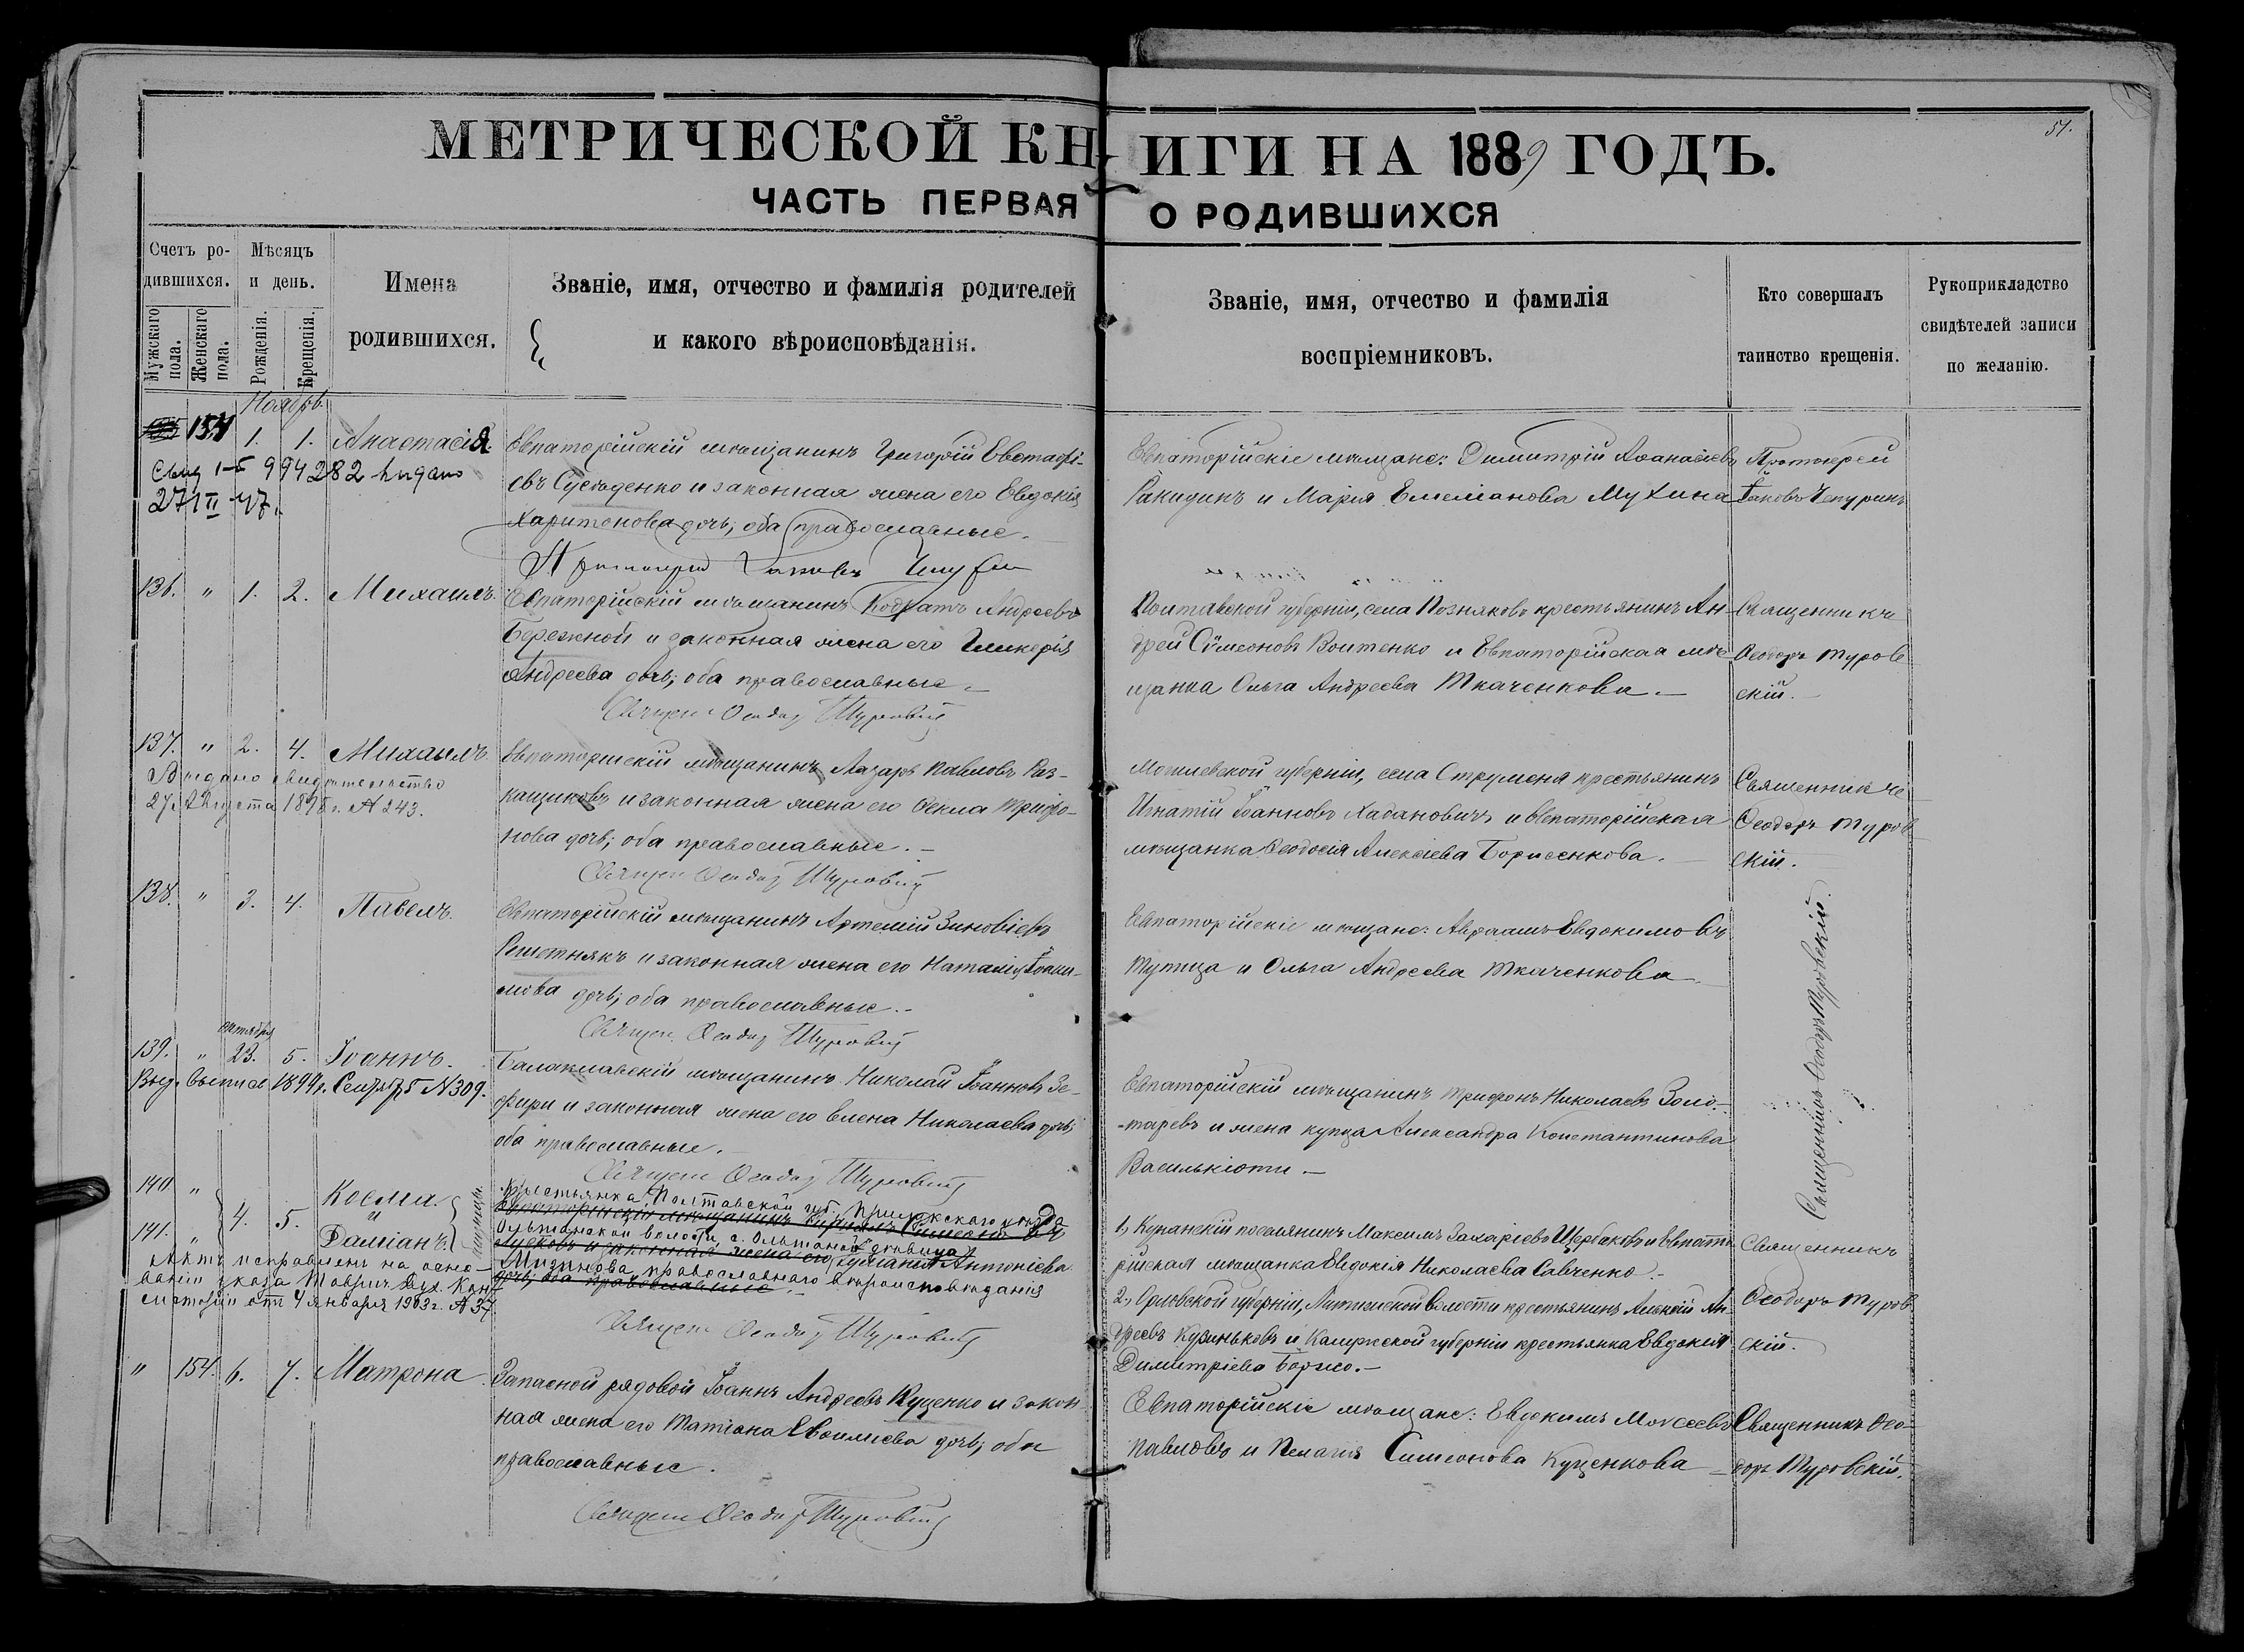 МЕТРИЧЕСКОЙ КНИГИ НА 1889 ГОДЪ.
ЧАСТЬ ПЕРВАЯ О РОДИВШИХСЯ
51.
Счетъ родившихся.
Мужскаго пола.
Женскаго пола.
Мѣсяцъ и день.
Рожденія.
Крещенія.
Имена
родившихся.
Званіе, имя, отчество и фамилія родителей
и какого вѣроисповѣданія.
Званіе, имя, отчество и фамилія
воспріемниковъ.
Кто совершалъ
таинство крещенія.
Рукоприкладство
свидѣтелей записи
по желанію.
Ноябрь.
154 1. 1. Анастасія.
994282
Евпаторійскій мѣщанинъ Григорій Евстафі-
евъ и законная жена его Евдокія
Харитонова дочь, оба православные.
Евпаторійскіе мѣщане: Димитрій Аѳанасіевъ
Ракидинъ и Марія Емеліанова Мухина
Протоіерей
Іаковъ Чепуринъ
136. " 1. 2. Михаилъ.
Евпаторійскій мѣщанинъ Кодратъ Андреевъ
Бережной и законная жена его Гликерія
Андреева дочь, оба православные.
Священ. Ѳеодоръ Туровскій
Полтавской губерніи, села Позняковъ крестьянинъ Ан-
дрей Сѵмеоновъ Воитенко и Евпаторійская мѣ-
щанка Ольга Андреева Ткаченкова.
Священникъ
Ѳеодоръ Туров-
скій.
137. " 2. 4. Михаилъ
Выдано свидѣтельство
27 Августа 1898 г. № 243.
Евпаторійскій мѣщанинъ Лазарь Павловъ Раз-
кащиковъ и законная жена его Ѳекла Трифо-
нова дочь, оба православные.
Священ. Ѳеодоръ Туровскій
Могилевской губерніи, села Струменя крестьянинъ
Игнатій Іоанновъ Хадановичъ и Евпаторійская
мѣщанка Ѳеодосія Алексіева Борисенкова.
Священникъ
Ѳеодоръ Туров-
скій.
138. " 3. 4. Павелъ.
Евпаторійскій мѣщанинъ Артемій Зиновіевъ
Решетнякъ и законная жена его Наталія Іоаки-
мова дочь, оба православные.
Священ. Ѳеодоръ Туровскій
Евпаторійскіе мѣщане: Авраамъ Евдокимовъ
Тупица и Ольга Андреева Ткаченкова
Священникъ Ѳеодоръ Туровскій.
октября
139. " 23. 5. Іоаннъ.
Выд. выпись 1899 г. Сентяб. 5 № 309.
Балаклавскій мѣщанинъ Николай Іоанновъ Зе-
фири и законная жена его Елена Николаева дочь,
оба православные.
Священ. Ѳеодоръ Туровскій
Евпаторійскій мѣщанинъ Трифонъ Николаевъ Золо-
таревъ и жена купца Александра Константинова
Василькіоти.
140. "
141. "
4. 5.
Косма
и
Даміанъ.
близнецы.
Актъ исправленъ на осно-
ваніи указа Таврич. Дух. Кон-
систоріи отъ 4 января 1903 г. № 37
крестьянка Полтавской губ. Прилукского уѣзда
Ольшанской волости, с. Ольшаной дѣвица
Антоніева
Мизинова, православнаго вѣроисповѣданія
дочь, оба православные.
Священ. Ѳеодоръ Туровскій
1, Куманскій поселянинъ Максимъ Захаріевъ Щербаковъ и Евпато-
рійская мѣщанка Евдокія Николаева Савченко.
2, Орловской губерніи, волости крестьянинъ Алексій Ан-
дреевъ Кузиньковъ и Калужской губерніи крестьянка Евдокія
Димитріева
Священникъ
Ѳеодоръ Туров-
скій.
" 154. 6. 7. Матрона
Запасной рядовой Іоаннъ Андреевъ Куценко и закон-
ная жена его Татіана дочь, оба
православные.
Священ. Ѳеодоръ Туровскій
Евпаторійскіе мѣщане: Евдокимъ Моисеевъ
Павловъ и Пелагія Симеонова Куценкова
Священникъ Ѳео-
доръ Туровскій.